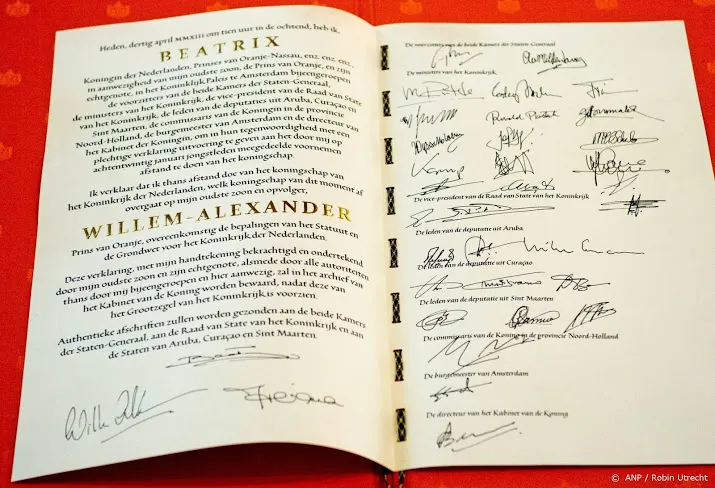 Heden, dertig april MMXIII om tien uur in de ochtend, heb ik,
BEATRIX
Koningin der Nederlanden, Prinses van Oranje-Nassau, enz. enz. enz.,
in aanwezigheid van mijn oudste zoon, de Prins van Oranje, en zijn
echtgenote, in het Koninklijk Paleis te Amsterdam bijeengeroepen
de voorzitters van de beide Kamers der Staten-Generaal,
de ministers van het Koninkrijk, de vice-president van de Raad van State
van het Koninkrijk, de leden van de deputaties uit Aruba, Curaçao en
Sint Maarten, de commissaris van de Koningin in de provincie
Noord-Holland, de burgemeester van Amsterdam en de directeur van
het Kabinet der Koningin, om in hun tegenwoordigheid met een
plechtige verklaring uitvoering te geven aan het door mij op
achtentwintig januari jongstleden meegedeelde voornemen
afstand te doen van het koningschap.
Ik verklaar dat ik thans afstand doe van het koningschap van
het Koninkrijk der Nederlanden, welk koningschap van dit moment af
overgaat op mijn oudste zoon en opvolger,
WILLEM-ALEXANDER
Prins van Oranje, overeenkomstig de bepalingen van het Statuut en
de Grondwet voor het Koninkrijk der Nederlanden.
Deze verklaring, met mijn handtekening bekrachtigd en ondertekend
door mijn oudste zoon en zijn echtgenote, alsmede door alle autoriteiten
thans door mij bijeengeroepen en hier aanwezig, zal in het archief van
het Kabinet van de Koning worden bewaard, nadat deze van
het Grootzegel van het Koninkrijk is voorzien.
Authentieke afschriften zullen worden gezonden aan de beide Kamers
der Staten-Generaal, aan de Raad van State van het Koninkrijk en aan
de Staten van Aruba, Curaçao en Sint Maarten.
De voorzitters van de beide Kamers der Staten-Generaal
De ministers van het Koninkrijk
De vice-president van de Raad van State van het Koninkrijk
De leden van de deputatie uit Aruba
De leden van de deputatie uit Curaçao
De leden van de deputatie uit Sint Maarten
De commissaris van de Koning in de provincie Noord-Holland
De burgemeester van Amsterdam
De directeur van het Kabinet van de Koning
© ANP / Robin Utrecht